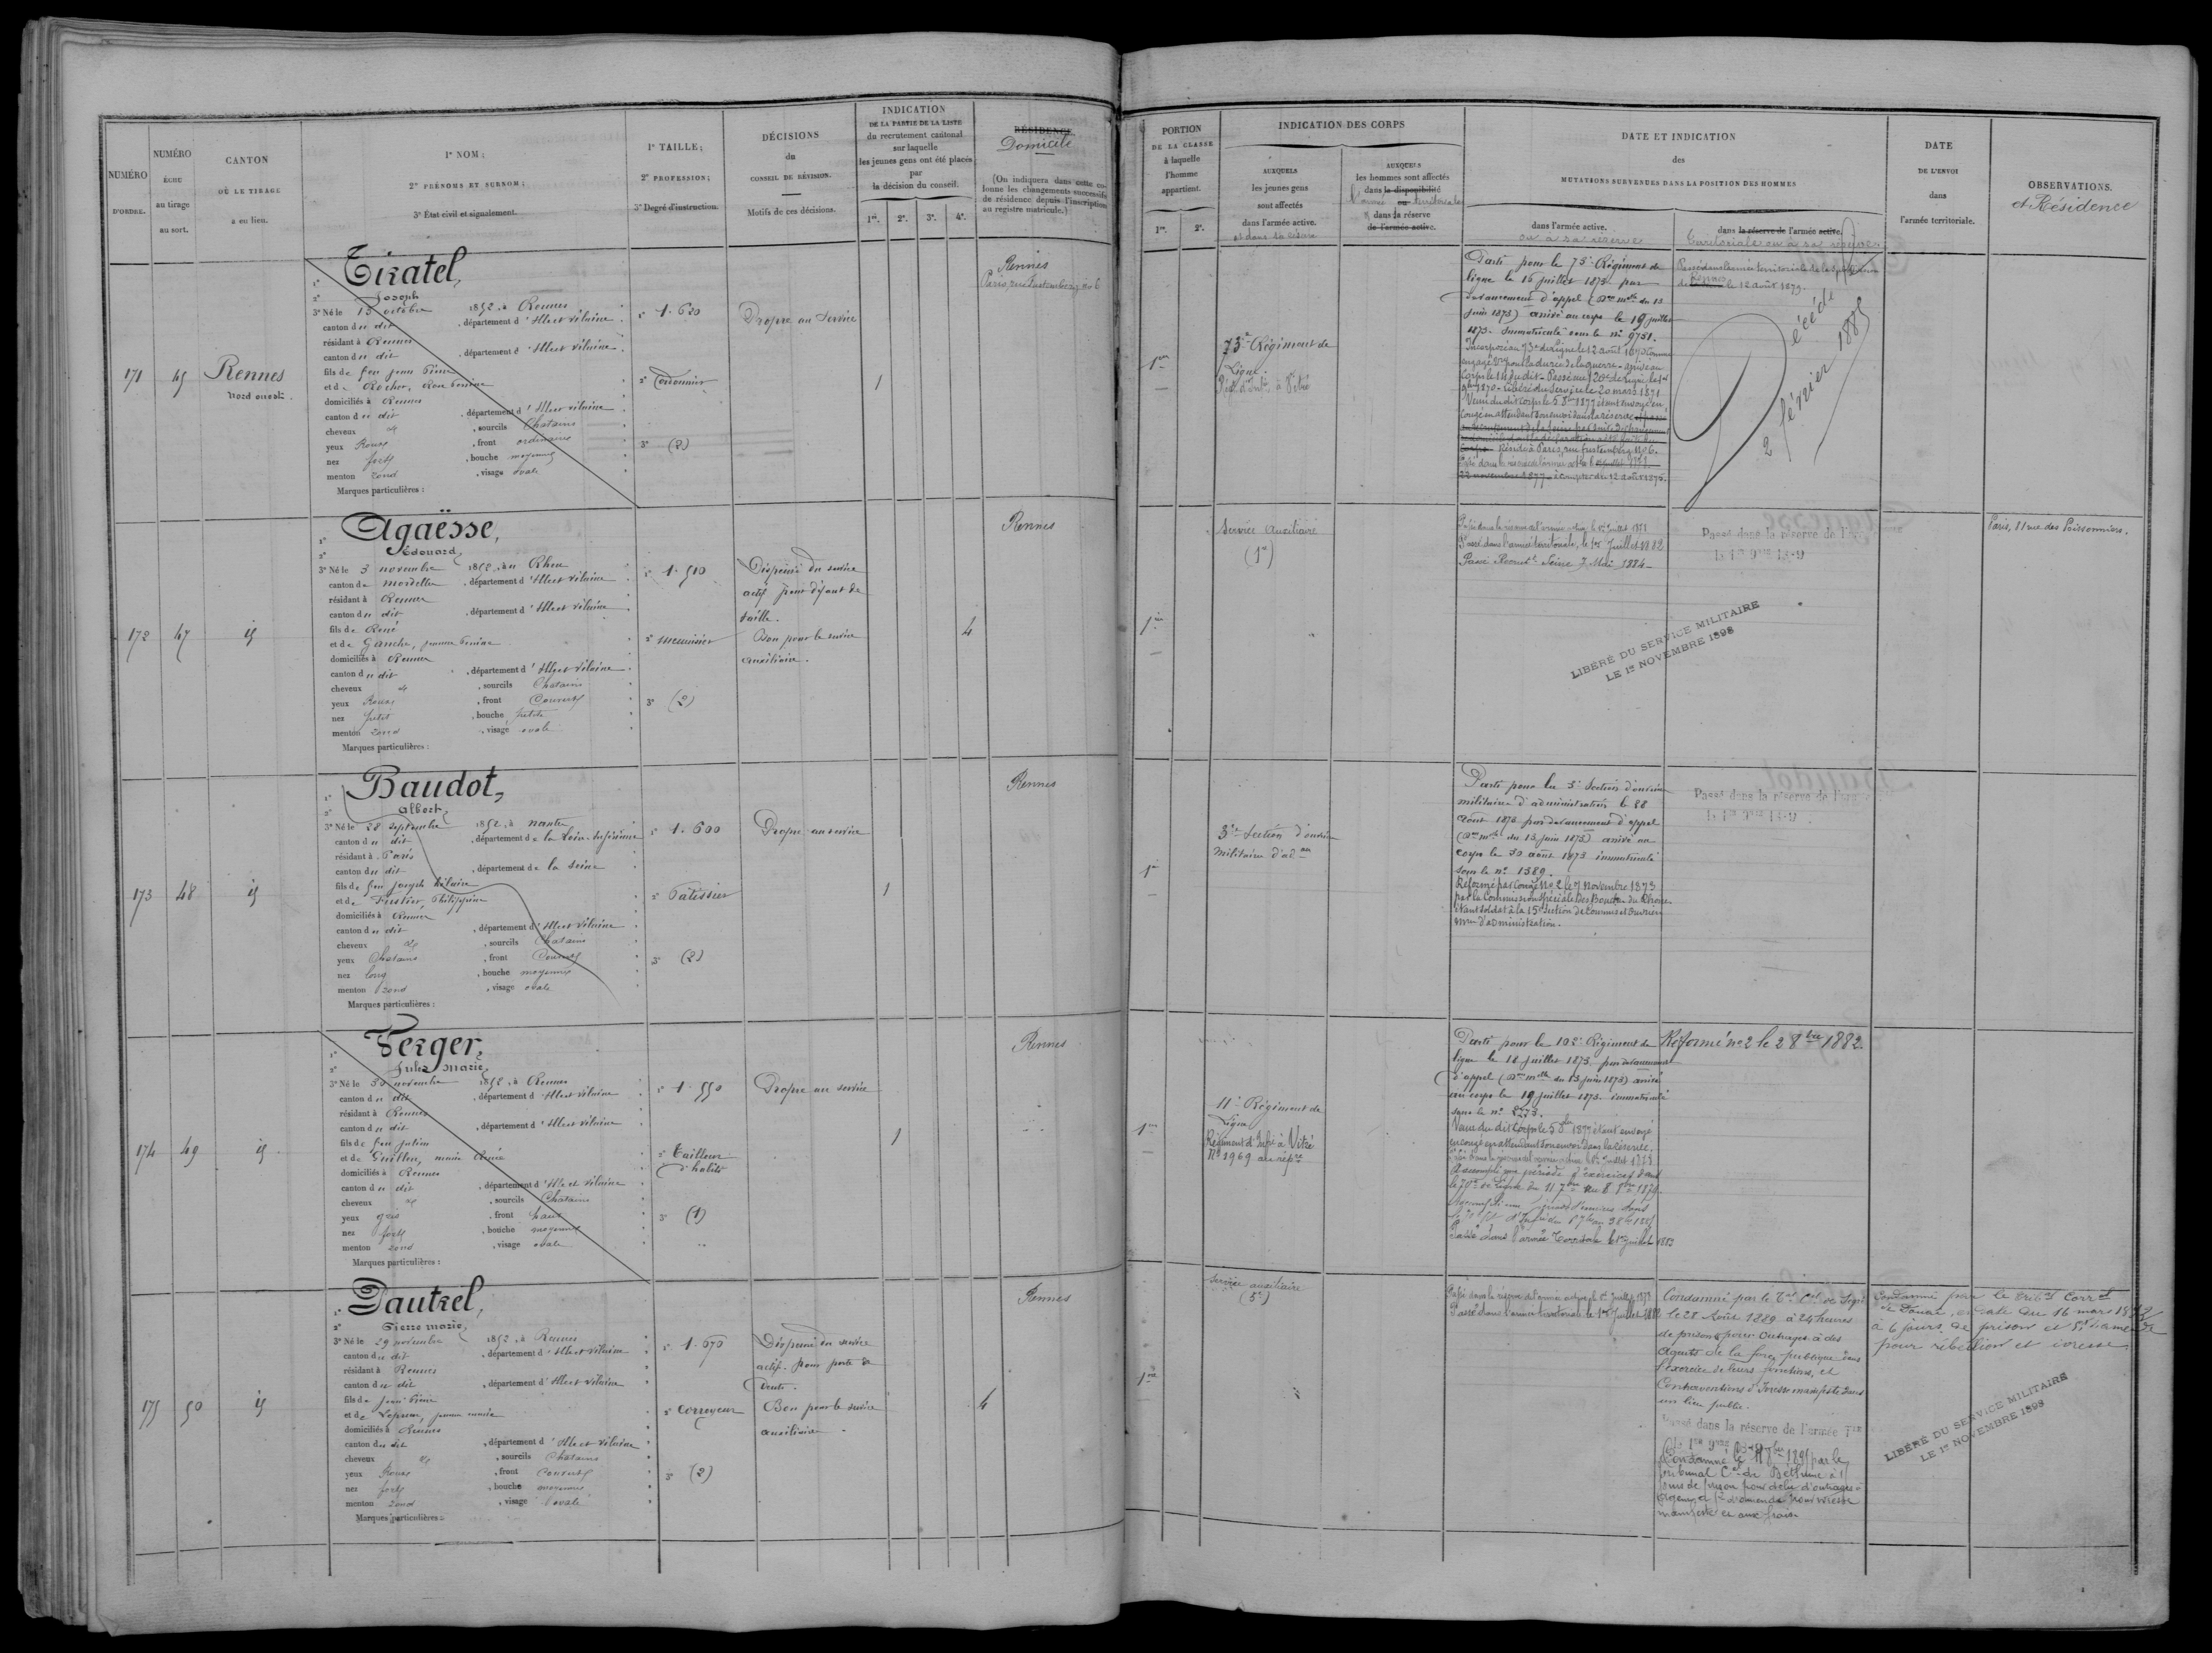 NUMÉRO
D'ORDRE.
NUMÉRO
ÉCHU
au tirage
au sort.
CANTON
OÙ LE TIRAGE
a eu lieu.
1º NOM;
2º PRÉNOMS ET SURNOM;
3º État civil et signalement.
1º TAILLE;
2º PROFESSION;
3º Degré d'instruction.
DÉCISIONS
du
CONSEIL DE RÉVISION.
Motifs de ces décisions.
INDICATION
DE LA PARTIE DE LA LISTE
du recrutement cantonal
sur laquelle
les jeunes gens ont été placés
par
la décision du conseil.
1re. 2e. 3e. 4e.
RÉSIDENCE
Domicile
(On indiquera dans cette co-
lonne les changements successifs
de résidence depuis l'inscription
au registre matricule.)
PORTION
DE LA CLASSE
à laquelle
l'homme
appartient.
1re. 2e.
INDICATION DES CORPS
AUXQUELS
les jeunes gens
sont affectés
dans l'armée active.
et dans sa réserve
AUXQUELS
les hommes sont affectés
dans la disponibilité
ou
dans la réserve
de l'armée active.
DATE ET INDICATION
des
MUTATIONS SURVENUES DANS LA POSITION DES HOMMES
dans l'armée active.
ou à sa réserve
dans la réserve de l'armée active.
territoriale ou à sa réserve
DATE
DE L'ENVOI
dans
l'armée territoriale.
OBSERVATIONS.
et Résidence
171
45
Rennes
Nord ouest
1º Tiratel,
2º Joseph
3º Né le 15 octobre 1852, à Rennes
canton du dit, département d'Ille et Vilaine
résidant à Rennes
canton du dit, département d'Ille et Vilaine
fils de feu Jean Pierre
et de Rocher,
domiciliés à Rennes
canton du dit, département d'Ille et Vilaine
cheveux et, sourcils Chatains
yeux Roux, front ordinaire
nez fort, bouche moyenne
menton rond, visage ovale
Marques particulières :
1º 1.620
2º Cordonnier
3º (2)
Propre au service
1
Rennes
1re
73e Régiment de
Ligne.
Régt d'Infie à Vitré
Parti pour le 73e Régiment de
ligne le 16 juillet 1873 par
devancement d'appel (Don mlle du 13
Juin 1873) arrivé au corps le 19 juillet
1873. Immatriculé sous le nº 9751.
Incorporé au 73e de ligne le 12 août 1870 comme
engagé vre pour la durée de la guerre - arrivé au
corps le 14 du dit - Passé au 120e de ligne le 1er
9bre 1870 - libéré du service le 20 mars 1871
Venu du dit corps le 5 8bre 1877 étant envoyé en
congé en attendant son envoi dans la réserve
Réside à Paris, rue Furstemberg Nº 6.
22 novembre 1877 à compter du 12 août 1875.
le 12 août 1879.
Décédé
2 février 1885
172
47
id
1º Agaësse,
2º Édouard,
3º Né le 3 novembre 1852, au Rheu
canton de Mordelles, département d'Ille et Vilaine
résidant à Rennes
canton du dit, département d'Ille et Vilaine
fils de René
et de Ganche, Jeanne Perrine
domiciliés à Rennes
canton du dit, département d'Ille et Vilaine
cheveux et, sourcils Chatains
yeux Roux, front Couvert
nez petit, bouche petite
menton rond, visage ovale
Marques particulières :
1º 1.510
2º menuisier
3º (2)
Dispensé du service
actif pour défaut de
taille.
Bon pour le service
auxiliaire.
4
Rennes
1re
Service Auxiliaire
(1º)
Passé dans la réserve de l'armée active le 1er Juillet 1878
Passé dans l'armée territoriale, le 1er Juillet 1882
Passé Recrutt Seine 7 Mai 1884
Passé dans la réserve de l'armée
LIBÉRÉ DU SERVICE MILITAIRE
LE 1er NOVEMBRE 1898
Paris, 81 rue des Poissonniers.
173
48
id
1º Baudot,
2º Albert,
3º Né le 28 septembre 1852, à Nantes
canton du dit, département de la Loire-Inférieure
résidant à Paris
canton du dit, département de la Seine
fils de feu Joseph Hilaire
et de Philippine
domiciliés à Rennes
canton du dit, département d'Ille et Vilaine
cheveux et, sourcils Chatains
yeux Chatains, front Couvert
nez long, bouche moyenne
menton rond, visage ovale
Marques particulières :
1º 1.600
2º Patissier
3º (2)
Propre au service
1
Rennes
1re
3e Section d'ouvriers
militaires d'adon
Parti pour la 3e Section d'ouvriers
militaires d'administration le 28
août 1873 par devancement d'appel
(Don mlle du 13 juin 1873) arrivé au
corps le 30 août 1873 immatriculé
sous le nº 1389.
Réformé par congé Nº 2 le 7 Novembre 1873
par la Commission spéciale des Bouches du Rhône
étant soldat à la 15e section de Commis et Ouvriers
mres d'administration.
Passé dans la réserve de l'armée
174
49
id
1º Verger,
2º Jules Marie,
3º Né le 30 novembre 1852, à Rennes
canton du dit, département d'Ille et Vilaine
résidant à Rennes
canton du dit, département d'Ille et Vilaine
fils de feu Julien
et de Guillou, marie
domiciliés à Rennes
canton du dit, département d'Ille et Vilaine
cheveux et, sourcils Chatains
yeux gris, front haut
nez fort, bouche moyenne
menton rond, visage ovale
Marques particulières :
1º 1.550
2º Tailleur
d'habits
3º (1)
Propre au service
1
Rennes
1re
11e Régiment de
Ligne
Régiment d'Infie à Vitré
Nº 1969 au répre
Parti pour le 102e Régiment de
ligne le 18 juillet 1873 par devancement
d'appel (Don mlle du 13 juin 1873) arrivé
au corps le 19 juillet 1873. Immatriculé
sous le nº 2273.
Venu du dit corps le 5 8bre 1877 étant envoyé
en congé en attendant son envoi dans la réserve.
Passé dans la réserve de l'armée active le 1er Juillet 1878
Accompli une période d'exercices dans
le 70e de ligne du 11 7bre au 8 8bre 1879.
Passé dans l'armée Territoriale le 1er Juillet 1883
Réformé nº 2 le 2 8bre 1882.
175
50
id
1º Dautrel,
2º Pierre Marie,
3º Né le 29 novembre 1852, à Rennes
canton du dit, département d'Ille et Vilaine
résidant à Rennes
canton du dit, département d'Ille et Vilaine
fils de Jean Pierre
et de Jeanne Marie
domiciliés à Rennes
canton du dit, département d'Ille et Vilaine
cheveux et, sourcils Chatains
yeux Roux, front Couvert
nez fort, bouche moyenne
menton rond, visage ovale
Marques particulières :
1º 1.670
2º Corroyeur
3º (2)
Dispensé du service
actif pour perte de
dents.
Bon pour le service
auxiliaire.
4
Rennes
1re
Service auxiliaire
(5º)
Passé dans la réserve de l'armée active le 1er Juillet 1878
Passé dans l'armée territoriale le 1er Juillet 1882
Condamné par le Tal Cel de
le 28 Août 1889 à 24 heures
de prison pour Outrages à des
Agents de la force publique dans
l'exercice de leurs fonctions, et
Contraventions d'Ivresse manifeste dans
un lieu public.
Passé dans la réserve de l'armée Tle
Condamné le par le
Tribunal Cel de Béthune à
jours de prison pour délit d'outrages à
agents et d'amende pour ivresse
manifeste et aux frais
Condamné par le tribal Correl
de Douai, en date du 16 mars
à 6 jours de prison et 5f d'amende
pour rébellion et ivresse
LIBÉRÉ DU SERVICE MILITAIRE
LE 1er NOVEMBRE 1898